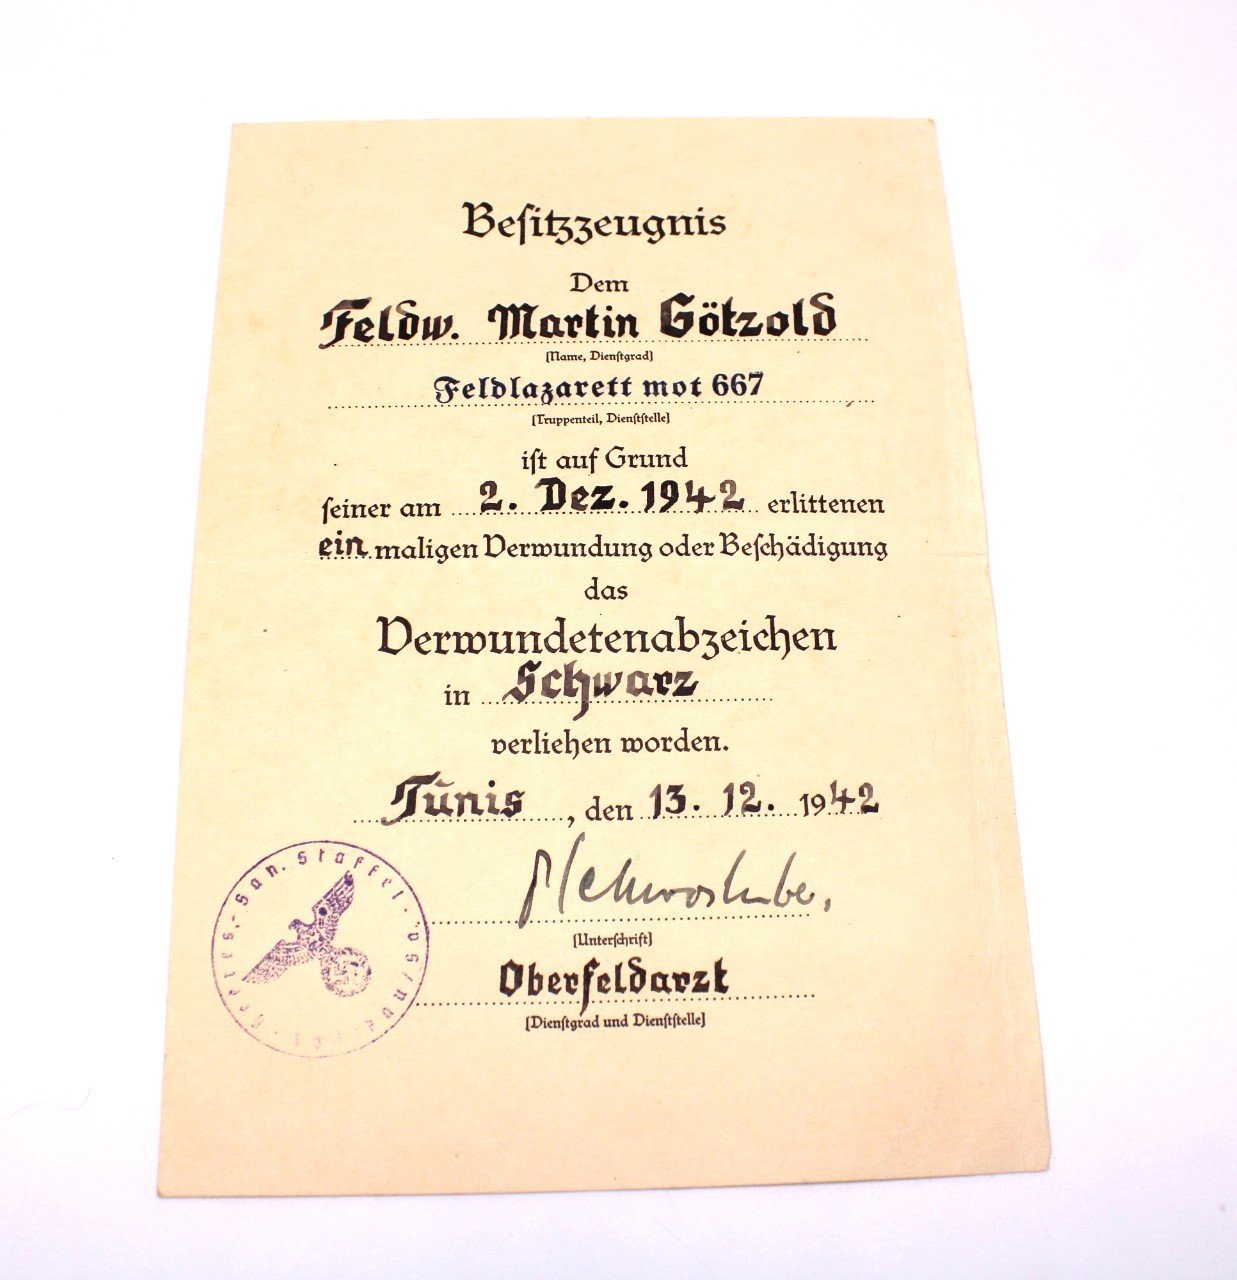 Besitzzeugnis
Dem
Feldw. Martin Götzold
(Name, Dienstgrad)
Feldlazarett mot 667
(Truppenteil, Dienststelle)
ist auf Grund
seiner am 2. Dez. 1942 erlittenen
ein maligen Verwundung oder Beschädigung
das
Verwundetenabzeichen
in Schwarz
verliehen worden.
Tunis, den 13. 12. 1942
(Unterschrift)
Oberfeldarzt
(Dienstgrad und Dienststelle)
San. Staffel